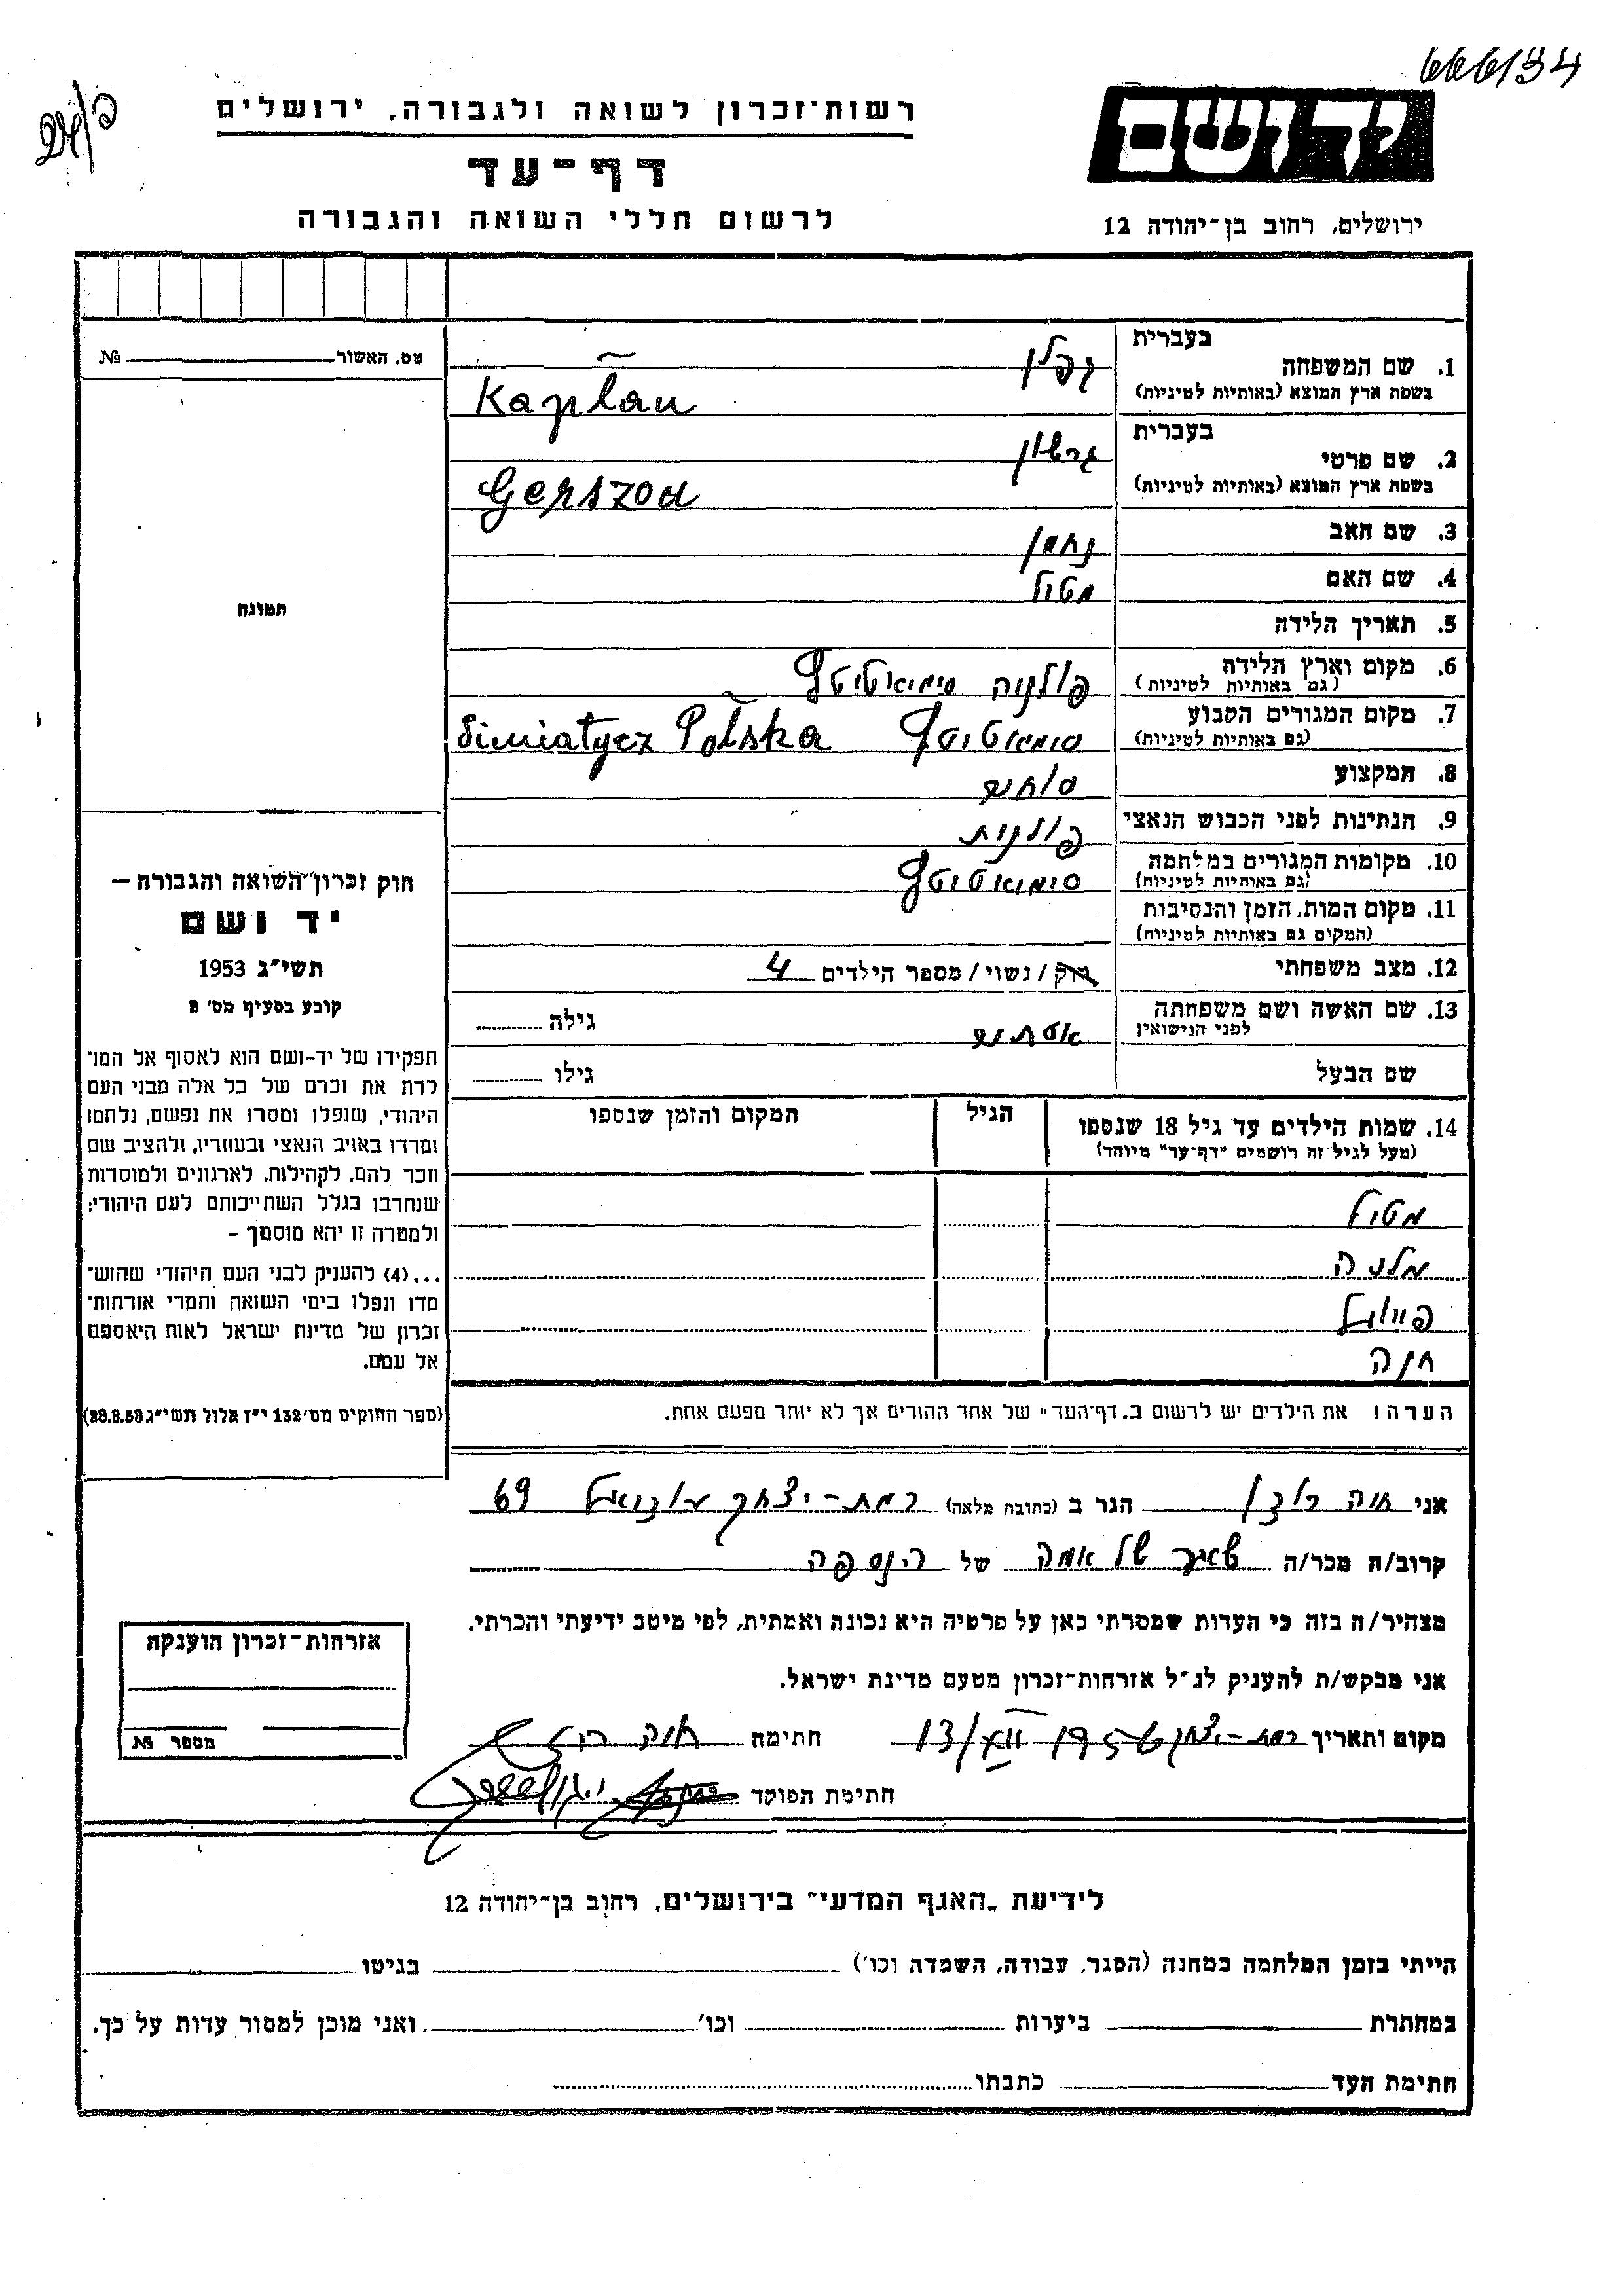 666/34
24/פ
יד ושם
ירושלים, רחוב בן־יהודה 12
רשות־זכרון לשואה ולגבורה, ירושלים
דף־עד
לרשום חללי השואה והגבורה
בעברית
1. שם המשפחה קפלן
בשפת ארץ המוצא (באותיות לטיניות) Kaplan
בעברית
2. שם פרטי גרשון
בשפת ארץ המוצא (באותיות לטיניות) Gerszon
3. שם האב נחמן
4. שם האם מטול
5. תאריך הלידה
6. מקום וארץ הלידה פולניה סימיאטיטץ
(גם באותיות לטיניות)
7. מקום המגורים הקבוע סימיאטיטץ Simiatycz Polska
(גם באותיות לטיניות)
8. המקצוע סוחר
9. הנתינות לפני הכבוש הנאצי פולנית
10. מקומות המגורים במלחמה סימיאטיטץ
(גם באותיות לטיניות)
11. מקום המות, הזמן והנסיבות
(המקום גם באותיות לטיניות)
12. מצב משפחתי רוק / נשוי / מספר הילדים 4
13. שם האשה ושם משפחתה אסתר גילה
לפני הנישואין
שם הבעל גילו
14. שמות הילדים עד גיל 18 שנספו הגיל המקום והזמן שנספו
(מעל לגיל זה רושמים "דף־עד" מיוחד)
מטול
מלניה
חנה
הערה: את הילדים יש לרשום ב„דף־העד" של אחד ההורים אך לא יותר מפעם אחת.
מס. האשור №
תמונה
חוק זכרון השואה והגבורה –
יד ושם
תשי"ג 1953
קובע בסעיף מס' 2
תפקידו של יד-ושם הוא לאסוף אל המו־
לדת את זכרם של כל אלה מבני העם
היהודי, שנפלו ומסרו את נפשם, נלחמו
ומרדו באויב הנאצי ובעוזריו, ולהציב שם
וזכר להם, לקהילות, לארגונים ולמוסדות
שנחרבו בגלל השתייכותם לעם היהודי;
ולמטרה זו יהא מוסמך –
...(4) להעניק לבני העם היהודי שהוש־
מדו ונפלו בימי השואה והמרי אזרחות־
זכרון של מדינת ישראל לאות היאספם
אל עמם.
(ספר החוקים מס' 132 י"ז אלול תשי"ג 28.8.53)
אני חוה רוזן הגר ב (כתובת מלאה) רמת-יצחק 69
קרוב/ה מכר/ה של אמה של הנספה
מצהיר/ה בזה כי העדות שמסרתי כאן על פרטיה היא נכונה ואמתית, לפי מיטב ידיעתי והכרתי.
אני מבקש/ת להעניק לנ"ל אזרחות־זכרון מטעם מדינת ישראל.
מקום ותאריך רמת-יצחק 13/XII 1956 חתימה חוה רוזן
חתימת הפוקד
אזרחות־זכרון הוענקה
מספר №
לידיעת „האגף המדעי" בירושלים, רחוב בן־יהודה 12
הייתי בזמן המלחמה במחנה (הסגר, עבודה, השמדה וכו') בגיטו
במחתרת ביערות וכו' ואני מוכן למסור עדות על כך.
חתימת העד כתבתו